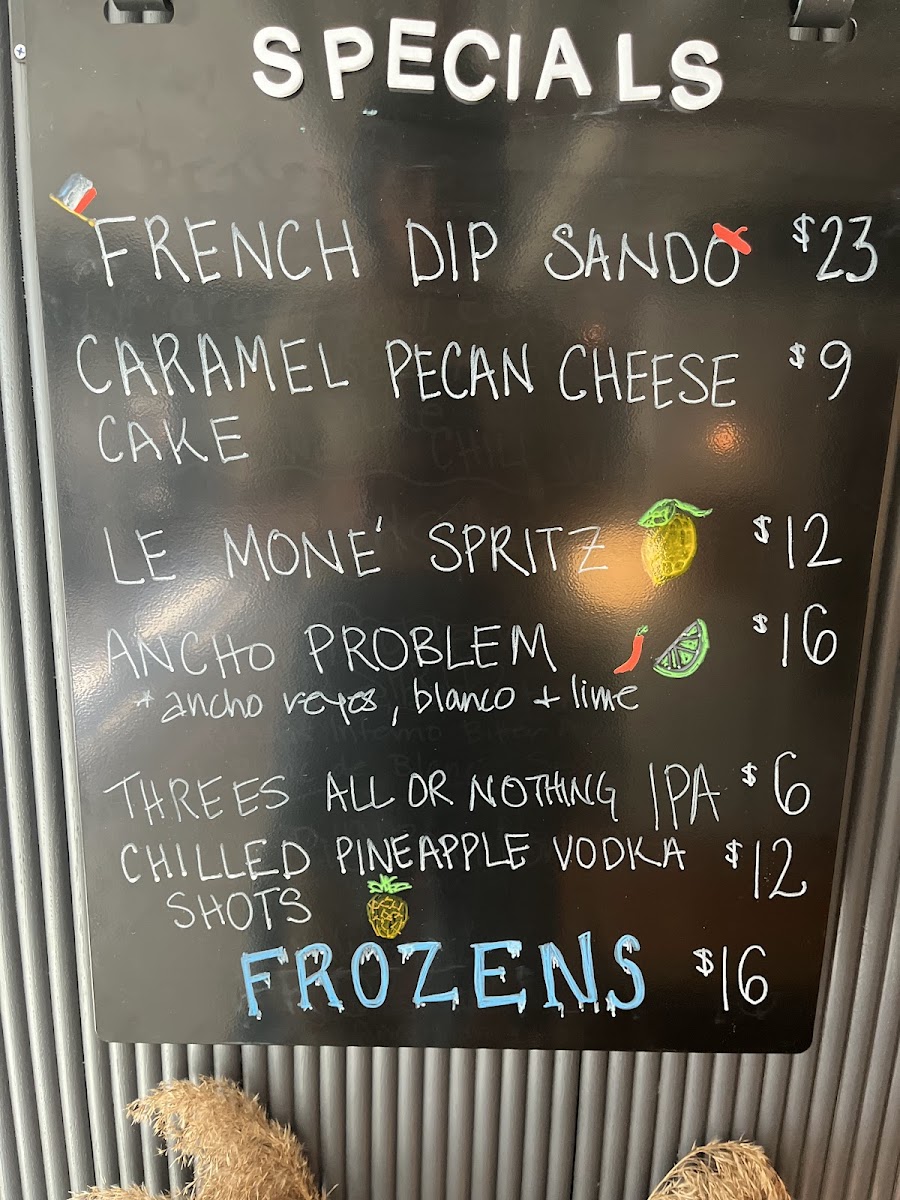 SPECIALS
FRENCH DIP SANDO $23
CARAMEL PECAN CHEESE $9
CAKE
LE MONÉ SPRITZ $12
ANCHO PROBLEM $16
* ancho reyes, blanco + lime
THREES ALL OR NOTHING IPA $6
CHILLED PINEAPPLE VODKA $12
SHOTS
FROZENS $16